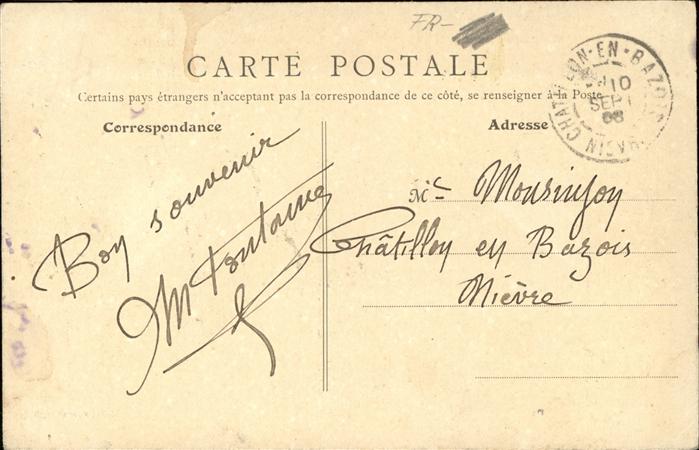 FR-
CARTE POSTALE
Certains pays étrangers n'acceptant pas la correspondance de ce côté, se renseigner à la Poste
Correspondance
Adresse
Bon souvenir
M Fontaine
Châtillon en Bazois
Nièvre
EN-BAZOIS
10
SEPT